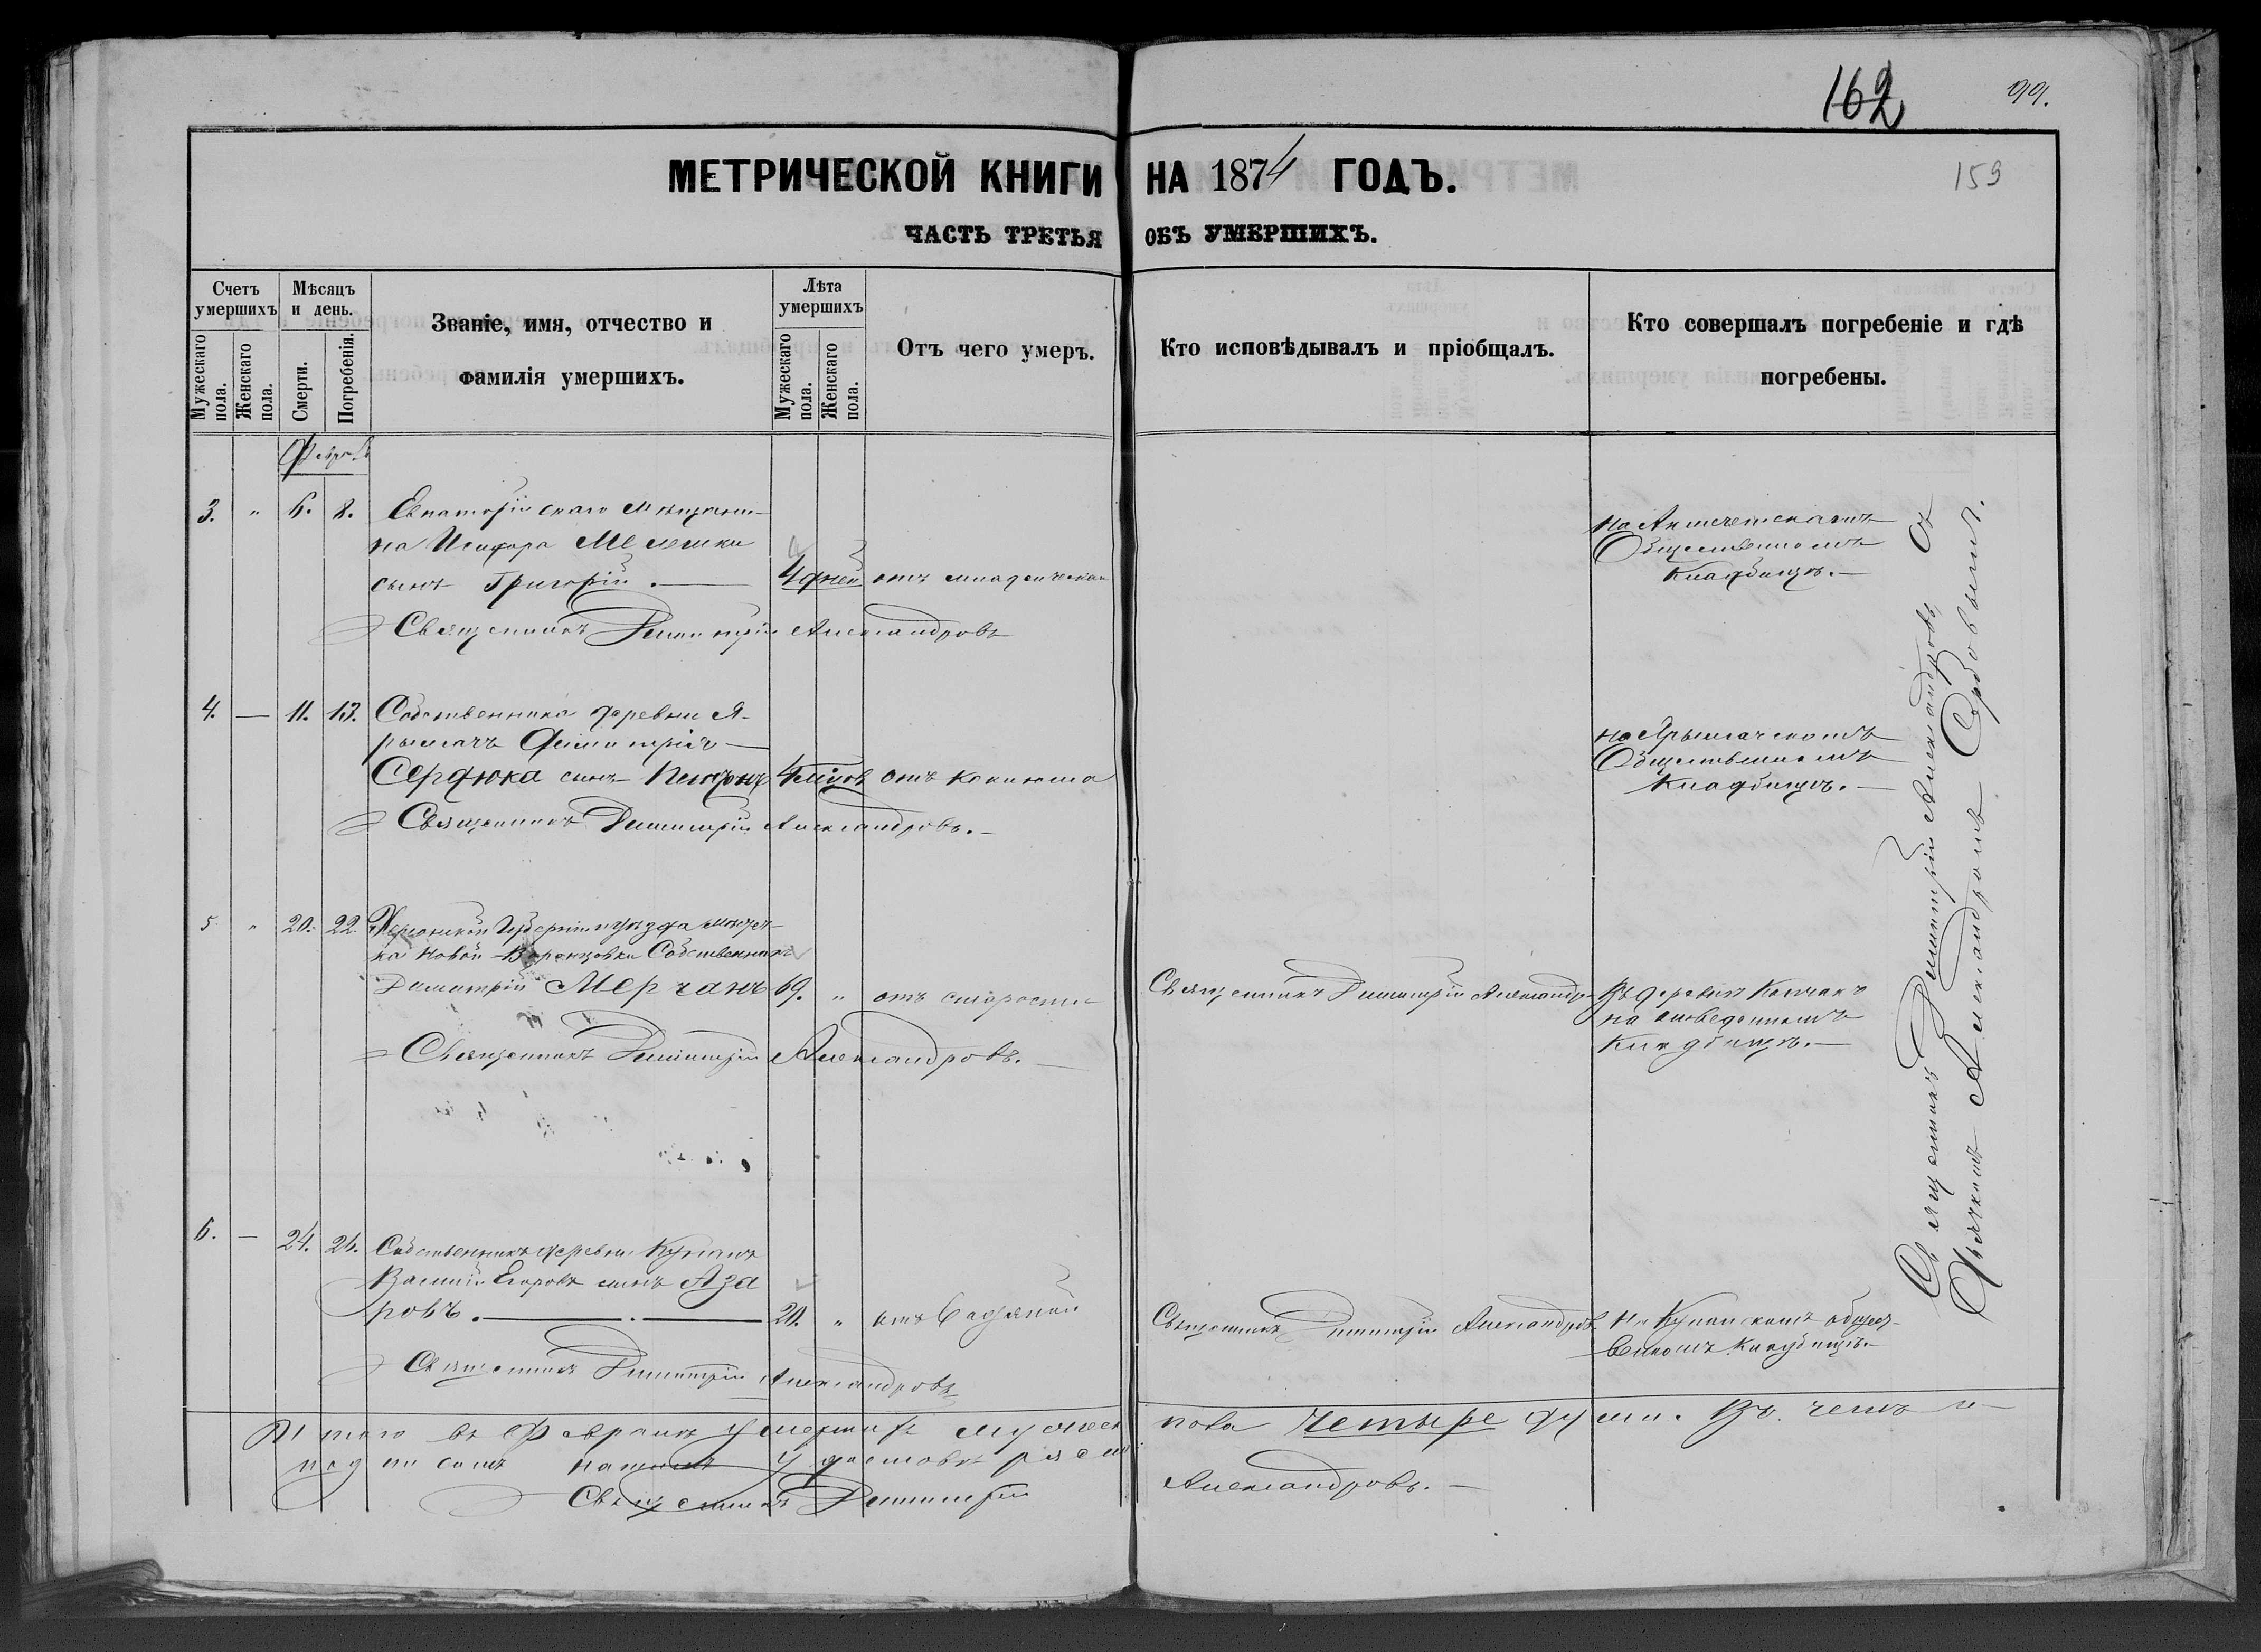 162
99.
МЕТРИЧЕСКОЙ КНИГИ НА 1874 ГОДЪ.
159
ЧАСТЬ ТРЕТЬЯ ОБЪ УМЕРШИХЪ.
Счетъ умершихъ
Мужескаго пола.
Женскаго пола.
Мѣсяцъ и день.
Смерти.
Погребенія.
Званіе, имя, отчество и
фамилія умершихъ.
Лѣта умершихъ
Мужескаго пола.
Женскаго пола.
Отъ чего умеръ.
Кто исповѣдывалъ и пріобщалъ.
Кто совершалъ погребеніе и гдѣ
погребены.
3. " 6. 8. Евпаторійскаго мѣщани-
на
сынъ Григорій. 4 дней отъ младенческой
На Акмечетскомъ
Общественномъ
Кладбищѣ.
Священникъ Димитрій Александровъ
4. — 11. 13. Собственника деревни Я-
рылгачъ Димитрія
Сердюка сынъ Петръ 4 отъ коклюша
на Ярылгачскомъ
Общественномъ
Кладбищѣ.
Священникъ Димитрій Александровъ.
5 " 20. 22. Херсонской Губерніи и уѣзда мѣстеч-
ка Новой-Воронцовки Собственникъ
Димитрій Мерчанъ 69. " отъ старости
Священникъ Димитрій Александр
Въ деревнѣ
на
Кладбищѣ.
Священникъ Димитрій Александровъ.
6. — 24. 26. Собственникъ деревни Куланъ
Василій Егоровъ сынъ Аза
ровъ. 20. " отъ водяной
Священникъ Димитрій Александровъ
На Куланскомъ общест-
венномъ Кладбищѣ.
Священникъ Димитрій Александровъ
Священникъ Димитрій Александровъ, съ
Дьячкомъ Александромъ Сербовымъ.
Итого въ Февралѣ умершихъ мужеск пола четыре души. Въ чемъ и
подписомъ нашимъ удостовѣряемъ
Священникъ Димитрій Александровъ.